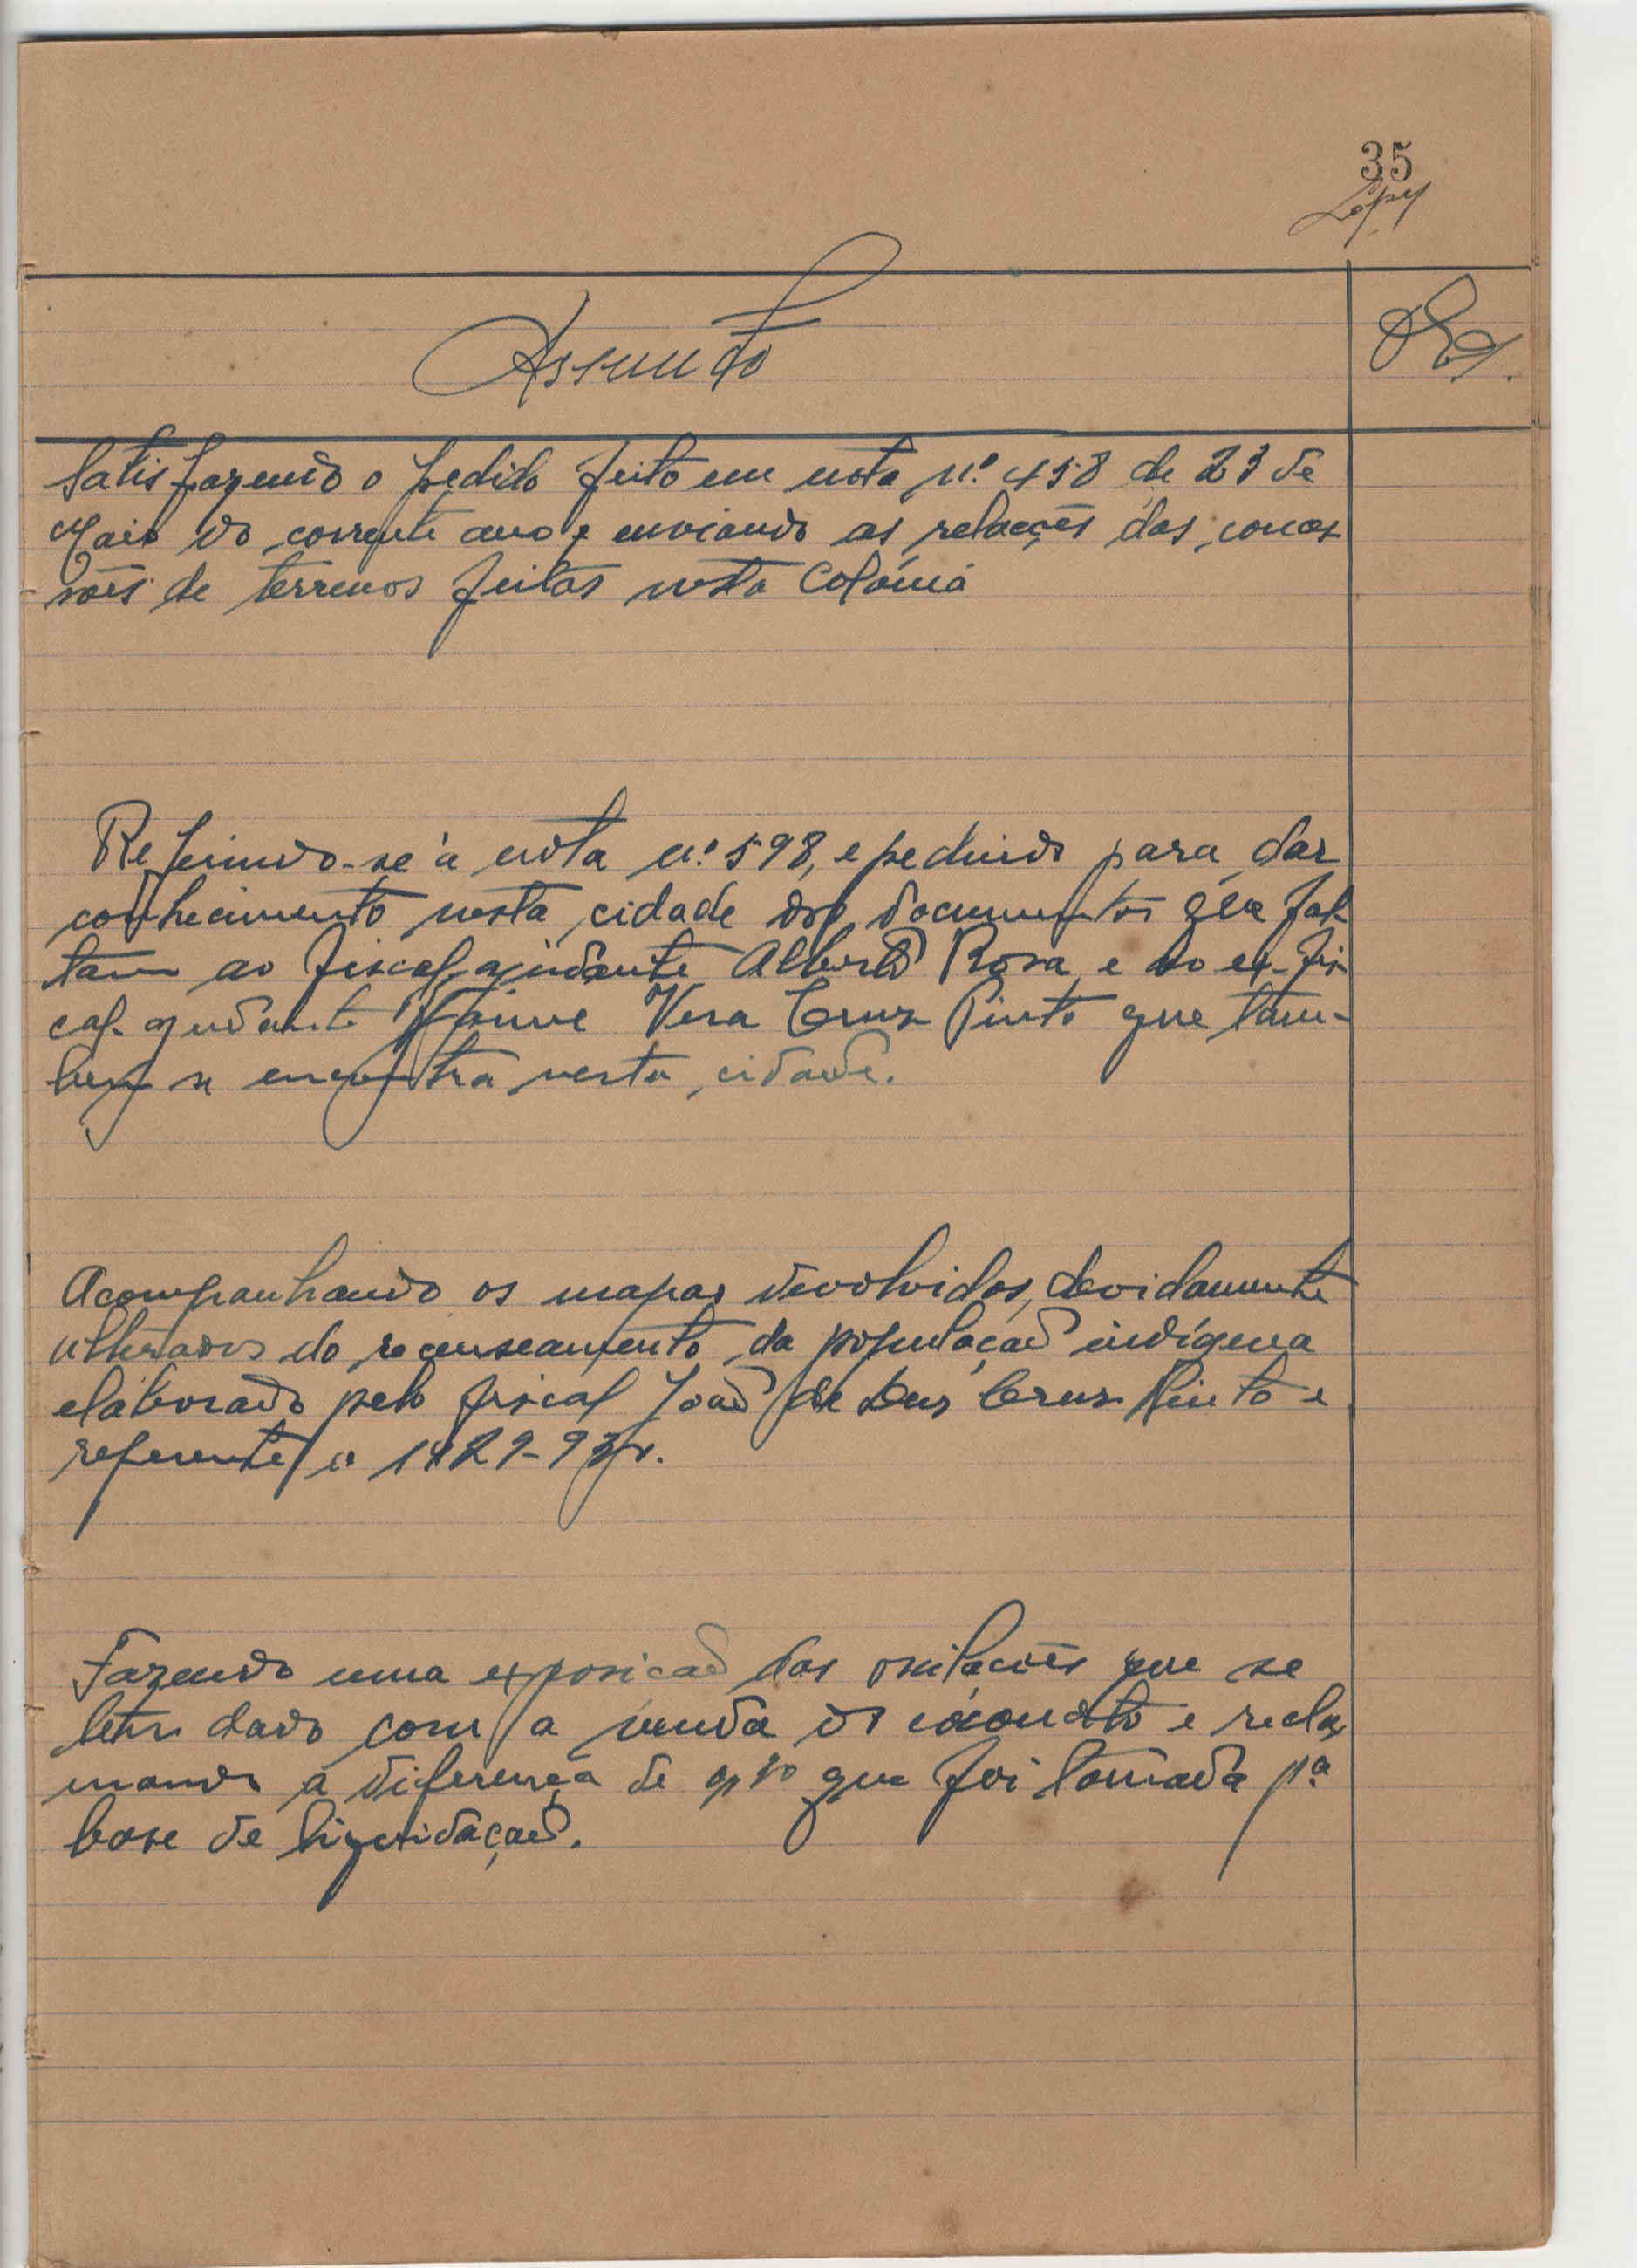 35
Lopes
Assunto
Obs.
Satisfazendo o pedido feito em nota n.º 458 de 23 de
Maio do corrente ano e enviando as relações das conces
sões de terrenos feitas nesta Colónia
Referindo-se á nota n.º 598, e pedindo para dar
conhecimento nesta cidade dos documentos que fal-
tam ao fiscal, ajudante Alberto Rosa e ao ex-fis
cal-ajudante Jaime Vera Cruz Pinto que tam-
bem se encontra nesta cidade.
Acompanhando os mapas devolvidos, devidamente
do recenseamento da população indígena
elaborado pelo fiscal João de Deus Cruz Pinto e
referente a
Fazendo uma exposicão das oscilações que se
tem dado com a venda do e recla
mando a diferença de que foi tomada p.ª
base de liquidação.